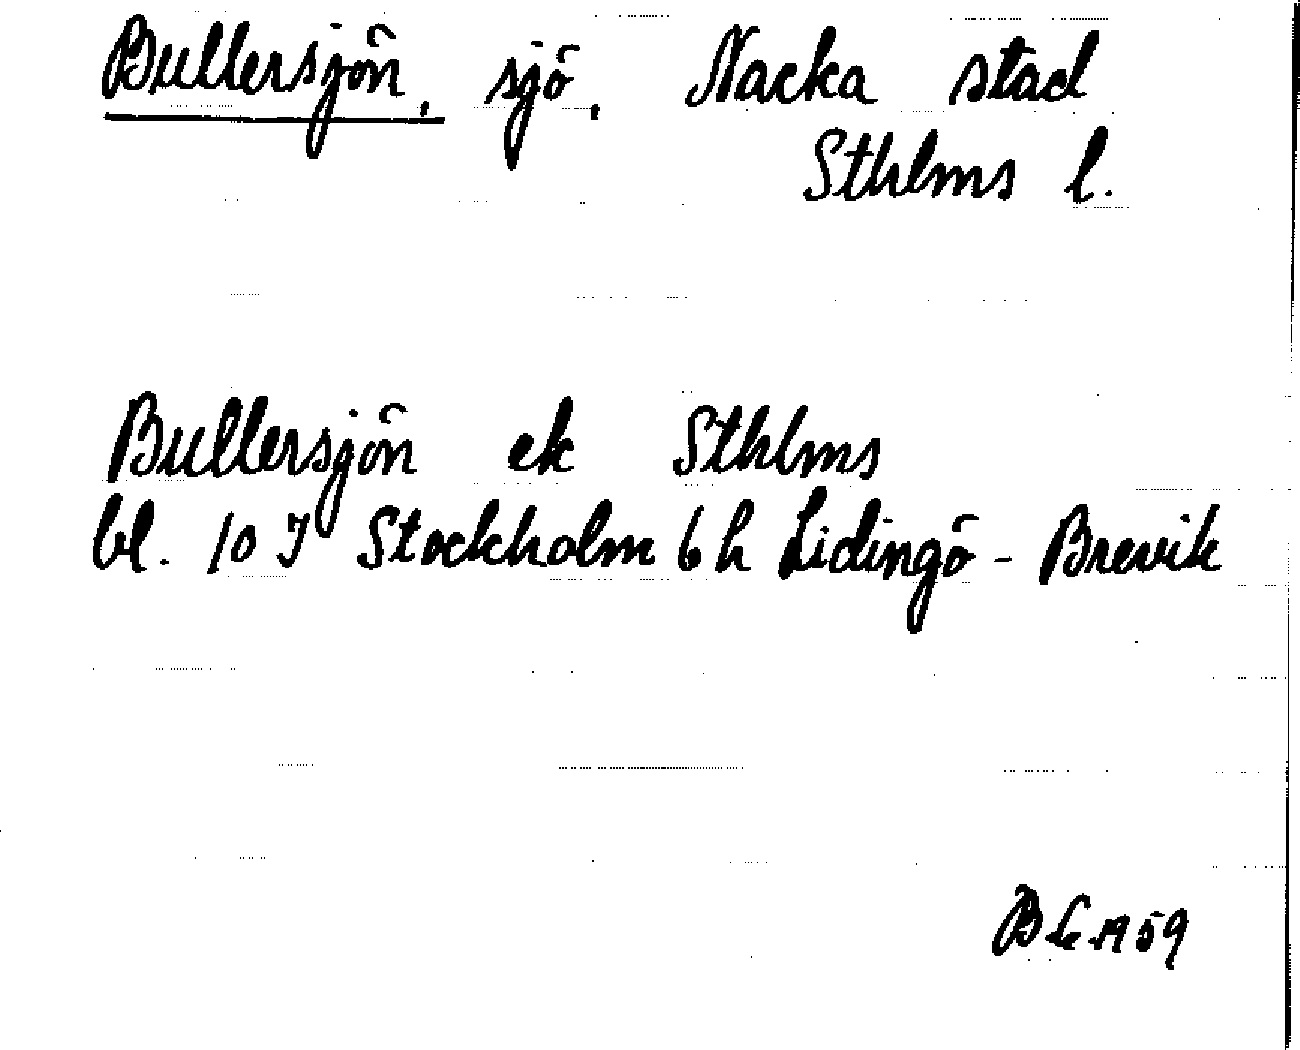 Bullersjön, sjö, Nacka stad
Sthlms l.
Bullersjön ek Sthlms
bl. 10 J Stockholm 6 h Lidingö - Brevik
1959